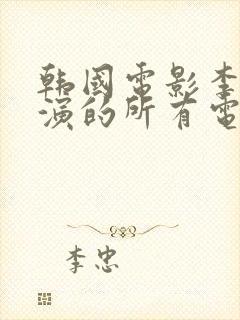 韩國電影李
演的所有電
李忠